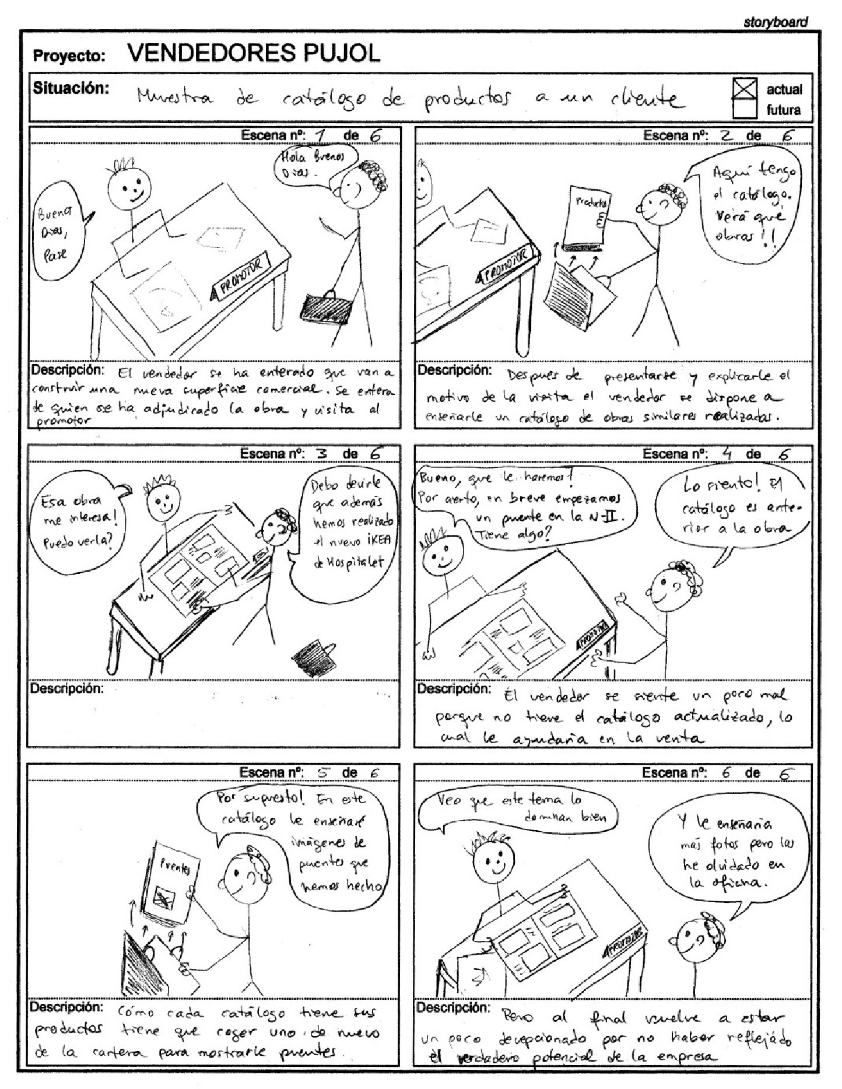 storyboard
Proyecto: VENDEDORES PUJOL
Situación: Muestra de catálogo de productos a un cliente
actual
futura
Escena nº: 1 de 6
Buenos
Dias,
Pase
Hola Buenos
Dias.
PROMOTOR
Descripción: El vendedor se ha enterado que van a
construir una nueva superficie comercial. Se entera
de quien se ha adjudicado la obra y visita al
promotor
Escena nº: 2 de 6
Productos
Aquí tengo
el catálogo.
Verá qué
obras!!
PROMOTOR
Descripción: Después de presentarse y explicarle el
motivo de la visita el vendedor se dispone a
enseñarle un catálogo de obras similares realizadas.
Escena nº: 3 de 6
Esa obra
me interesa!
Puedo verla?
Debo decirle
que además
hemos realizado
el nuevo iKEA
de Hospitalet
Descripción:
Escena nº: 4 de 6
Bueno, que le haremos!
Por cierto, en breve empezamos
un puente en la N-II.
Tiene algo?
Lo siento! El
catálogo es ante-
rior a la obra
PROMOTOR
Descripción: El vendedor se siente un poco mal
porque no tiene el catálogo actualizado, lo
cual le ayudaria en la venta
Escena nº: 5 de 6
Por supuesto! En este
catálogo le enseñaré
imágenes de
puentes que
hemos hecho
Puentes
Descripción: Cómo cada catálogo tiene sus
productos tiene que coger uno de nuevo
de la cartera para mostrarle puentes.
Escena nº: 6 de 6
Veo que este tema lo
dominan bien
Y le enseñaria
más fotos pero las
he olvidado en
la oficina.
PROMOTOR
Descripción: Pero al final vuelve a estar
un poco decepcionado por no haber reflejado
el verdadero potencial de la empresa